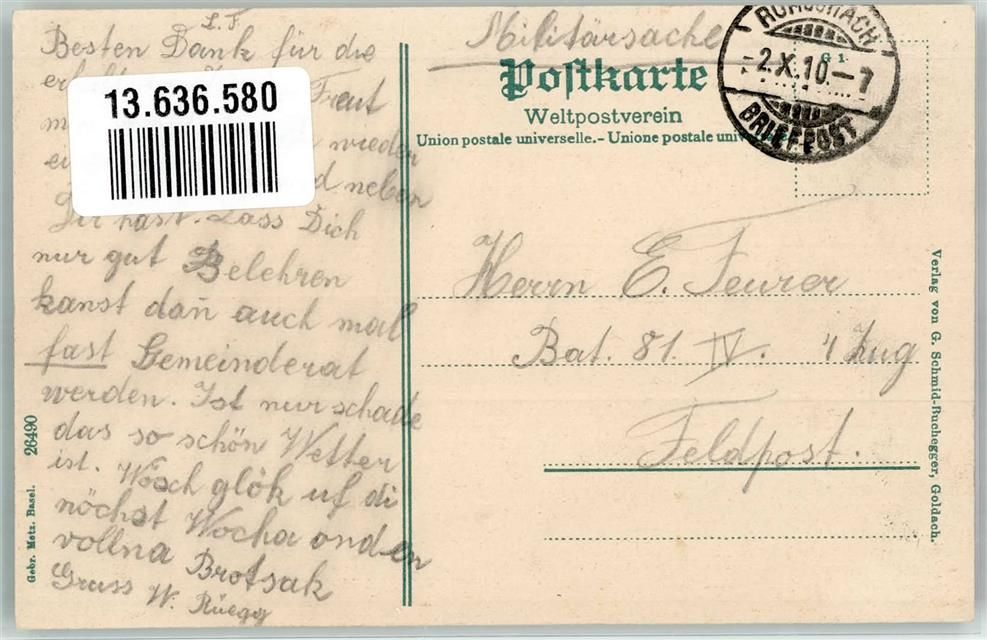 L. F.
Besten Dank für die
Freut
wieder
neben
Dir hast. Lass Dich
nur gut Belehren
kanst dañ auch mal
fast Gemeinderat
werden. Ist nur schade
das so schön Wetter
ist. Wösch glök uf di
nöchst Wocha ond en
vollna Brotsak
Gruss W. Rüegg
13.636.580
Gebr. Metz, Basel. 26490
Militärsache
Postkarte
Weltpostverein
Union postale universelle. - Unione postale
RORSCHACH
-2.X.10.-7
BRIEFPOST
Herrn E. Feurer
Bat. 81. IV. 4 Zug
Feldpost.
Verlag von G. Schmid-Buchegger, Goldach.